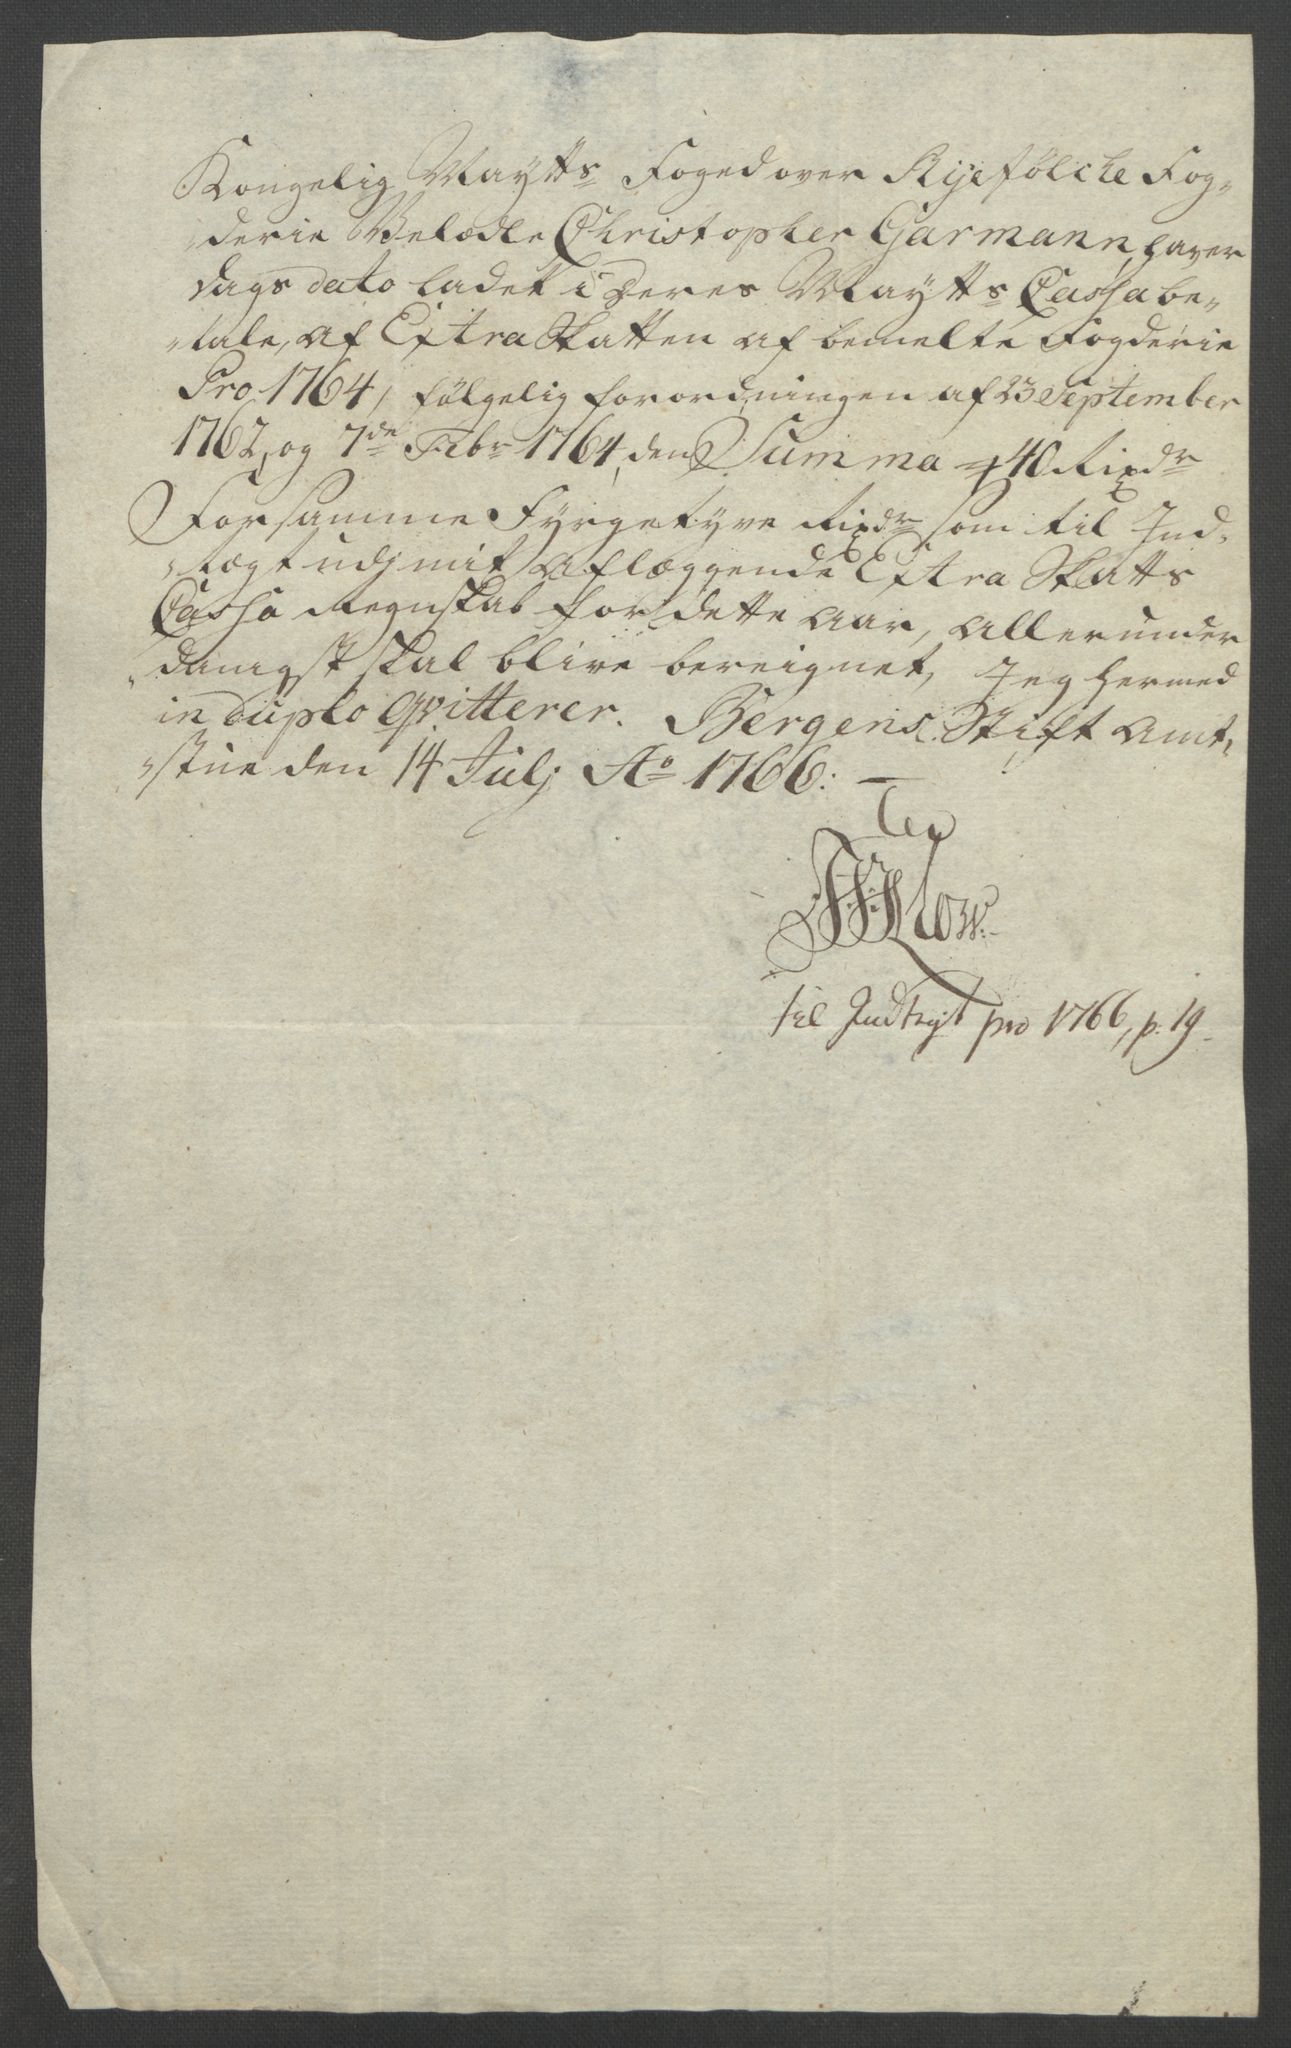 Kongelig Maÿtts Foged over Rÿefölcke Fog-
derie Velædle Christopher Garmann, haver
dags dato ladet i Deres Maÿtts Cassa be-
tale, af Extra Skatten af bemelte Fogderie
Pro 1764, fölgelig forordningen af 23 September
1762, og 7de Febr 1764, den Summa 40 Rixdr
For samme Fÿrgetÿve Rixdr som til Ind-
tægt udj mit aflæggende Extra Skatts
Cassa Regnskab for dette Aar, allerunder
danigst skal blive bereignet, Jeg hermed
in duplo Qvitterer. Bergens Stift Amt-
stue den 14 Julj Ao 1766.

til Indtægt pro 1766, p. 19